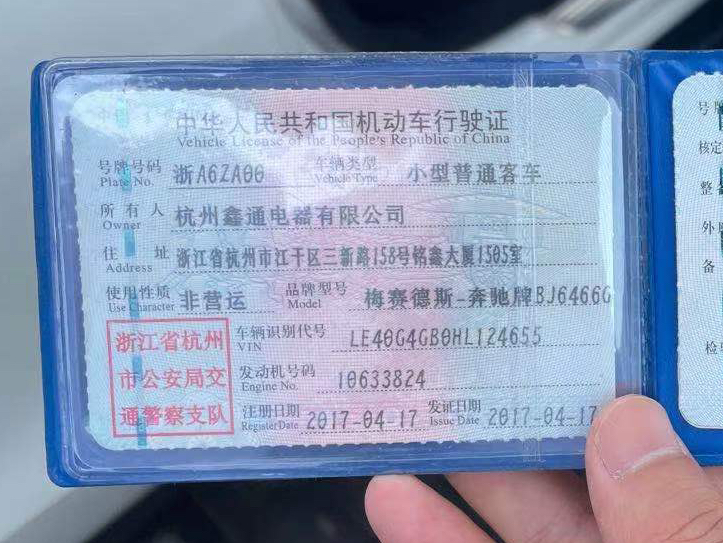 中华人民共和国机动车行驶证
Vehicle License of the People's Republic of China
号牌号码 浙A6ZA00 车辆类型 小型普通客车
Plate No. Vehicle Type
所有人 杭州鑫通电器有限公司
Owner
住址 浙江省杭州市江干区三新路158号铭鑫大厦1505室
Address
使用性质 非营运 品牌型号 梅赛德斯-奔驰牌BJ6466G
Use Character Model
浙江省杭州
市公安局交
通警察支队
车辆识别代号 LE40G4GB0HL124655
VIN
发动机号码 10633824
Engine No.
注册日期 2017-04-17 发证日期 2017-04-17
Register Date Issue Date
号牌
核定
整
外
备
检